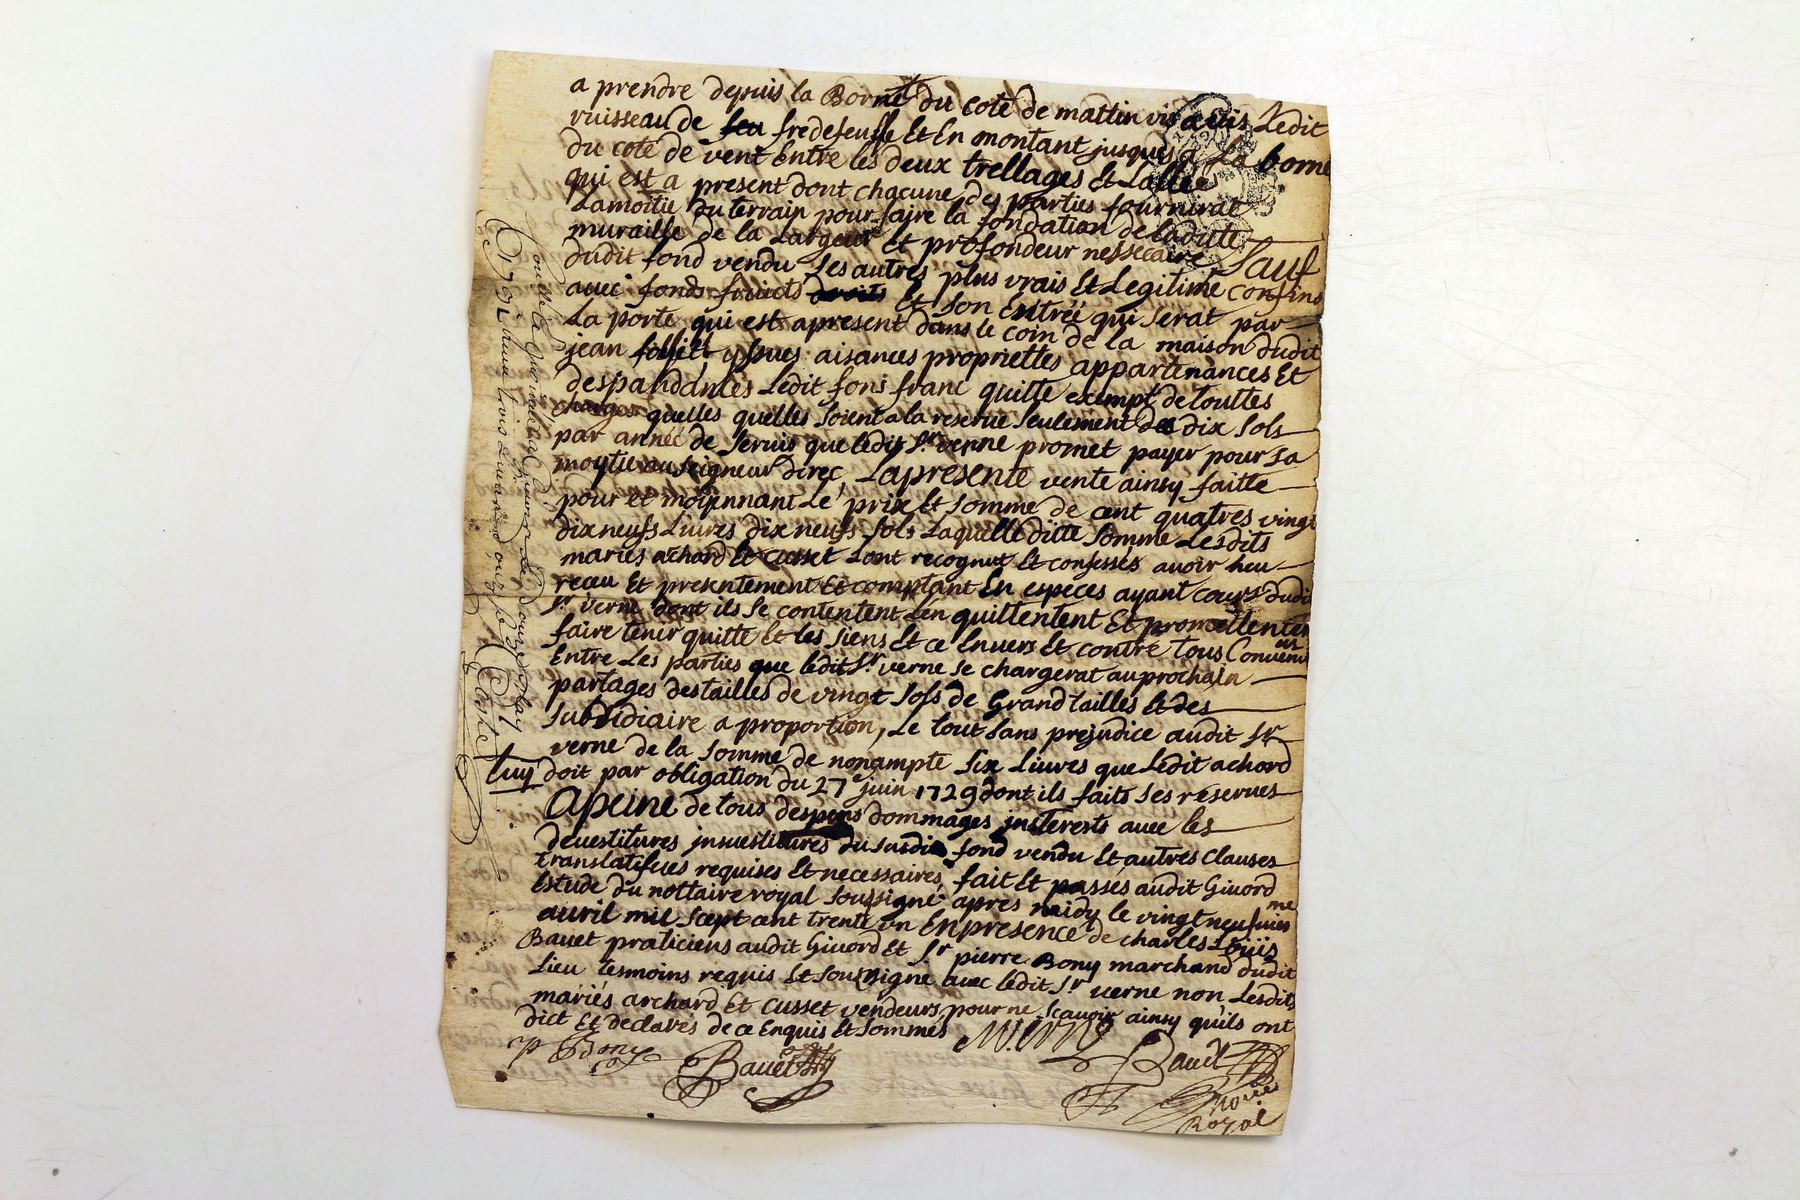 a prendre depuis la Borne du coté de mattin vis avis Ledit
ruisseau de feu fredefeusse Et En montant jusques a La borne
du coté de vent Entre les deux trellages et Lallée
qui est a present dont chacune des parties fournirat
Lamoitié du terrain pour faire la fondation de ladite
muraille de la Largeur et profondeur nessecaire Sauf
dudit fond vendu Ses autres plus vrais Et Legitime confins
avec fonds fruicts droits et son Entréé qui serat par
La porte qui est apresent dans le coin de la maison dudit
jean yssues aisances propriettes appartenances Et
despandances Ledit fons franc quitte exempt de touttes
charges quelles quelles soient a la reserve seulement de dix sols
par année de servis que ledit Sr. verne promet payer pour sa
moytié au seigneur direc, Lapresente vente ainsy faitte
pour et moÿennant Le prix Et somme de cent quatres vingt
dix neufs Livres dix neufs sols Laquelle ditte somme Lesdits
mariés achard Et Cusset Lont recognut Et confessés avoir heu
receu Et presentement Et comptant En especes ayant cours dudit
Sr. verne dont ils se contentent Len quittentent Et promettentent
faire tenir quitte Et les siens Et ce Envers Et contre tous Convenu
Entre Les parties que ledit Sr. verne se chargerat au prochain
partages des tailles de vingt sols de Grand tailles Et des
subsidiaire a proportion, Le tout sans prejudice audit Sr
verne de la somme de nonampte six Livres que Ledit achard
luy doit par obligation du 27e juin 1729 dont ils faits ses réserves
Apeine de tous despens dommages jnsterests avec les
devestitures jnvestitures du susdit fond vendu Et autres clauses
translatifves requises Et necessaires, fait Et passés audit Givord
Estude du nottaire royal soussigné apres midy le vingt neufvieme
avril mil scept cent trente un En presence de charles Louis
Bavet praticiens audit Givord Et Sr pierre Bony marchand dudit
Lieu tesmoins requis Et soussigné avec ledit Sr verne non Lesdits
mariés archard Et Cusset vendeurs pour ne scavoir ainsy quils ont
dict Et declarés de ce Enquis Et sommés M. verne
p Bony Bavet
Royal